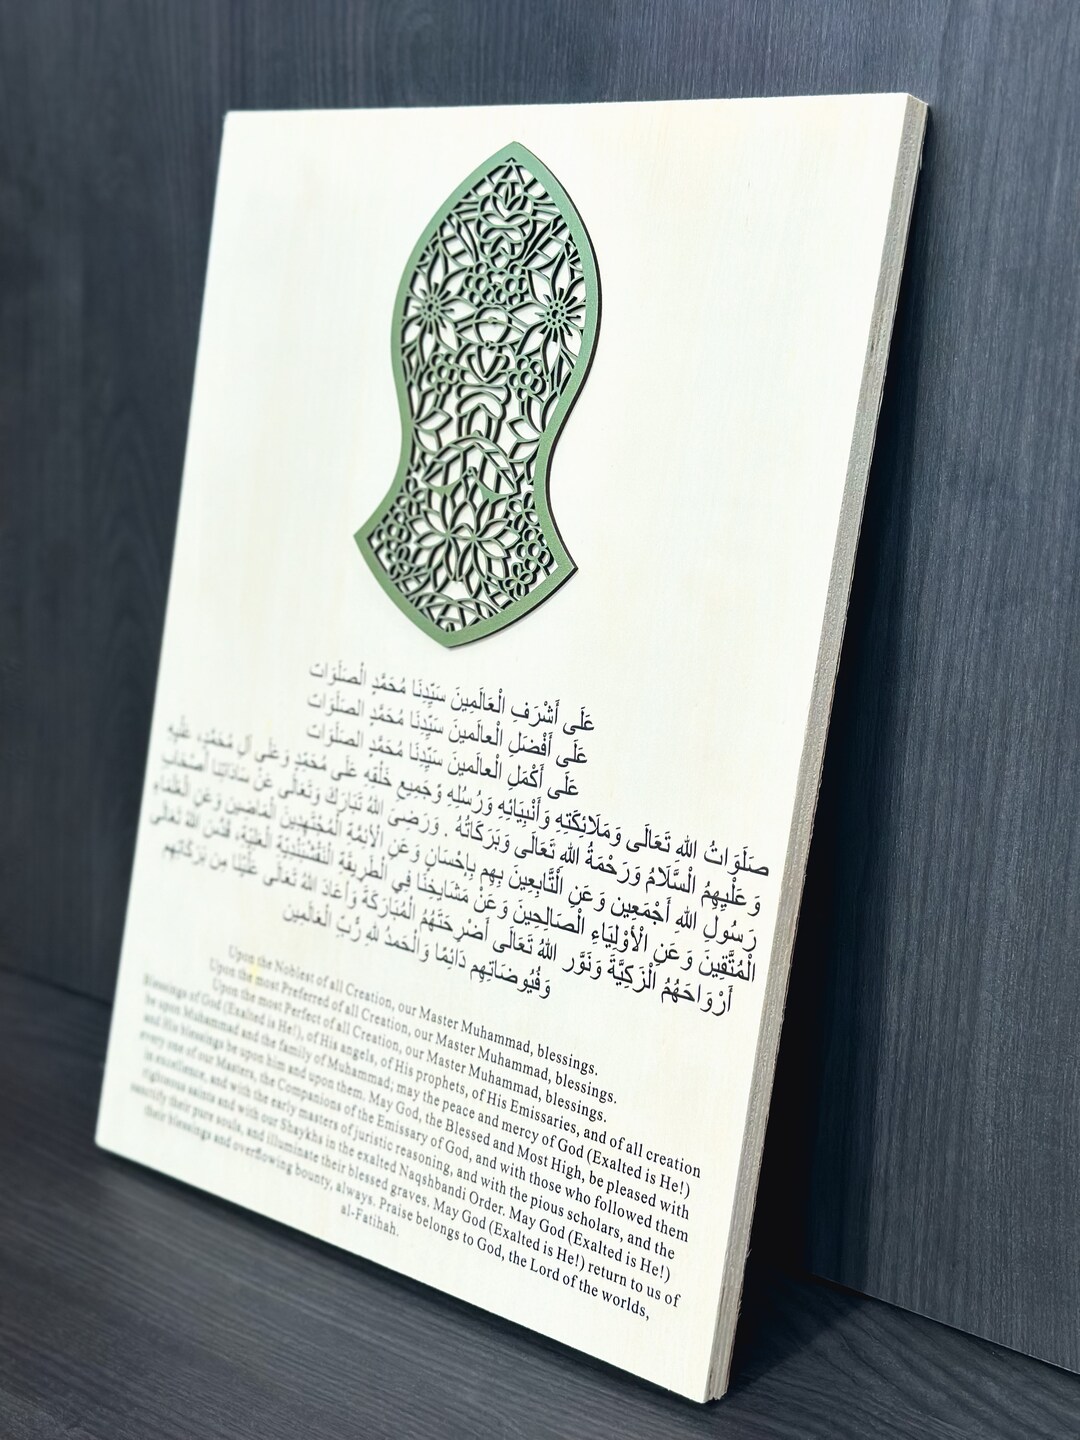 عَلَى أَشْرَفِ الْعَالَمِينَ سَيِّدِنَا مُحَمَّدٍ الصَّلَوَات
عَلَى أَفْضَلِ الْعَالَمِينَ سَيِّدِنَا مُحَمَّدٍ الصَّلَوَات
عَلَى أَكْمَلِ الْعَالَمِينَ سَيِّدِنَا مُحَمَّدٍ الصَّلَوَات
صَلَوَاتُ اللهِ تَعَالَى وَمَلَائِكَتِهِ وَأَنْبِيَائِهِ وَرُسُلِهِ وَجَمِيعِ خَلْقِهِ عَلَى مُحَمَّدٍ وَعَلَى آلِ مُحَمَّدٍ، عَلَيْهِ
وَعَلَيْهِمُ السَّلَامُ وَرَحْمَةُ اللهِ تَعَالَى وَبَرَكَاتُهُ . وَرَضِيَ اللهُ تَبَارَكَ وَتَعَالَى عَنْ سَادَاتِنَا أَصْحَابِ
رَسُولِ اللهِ أَجْمَعِين وَعَنِ التَّابِعِينَ بِهِم بِإِحْسَانٍ وَعَنِ الْأَئِمَّةِ الْمُجْتَهِدِينَ الْمَاضِين وَعَنِ الْعُلَمَاءِ
الْمُتَّقِينَ وَعَنِ الْأَوْلِيَاءِ الصَّالِحِينَ وَعَنْ مَشَايِخِنَا فِي الْطَرِيقَةِ النَّقْشْبَنْدِيَّةِ الْعَلِيَّة، قَدَّسَ اللهُ تَعَالَى
أَرْوَاحَهُمُ الْزَكِيَّةَ وَنَوَّرَ اللهُ تَعَالَى أَضْرِحَتَهُمُ الْمُبَارَكَةَ وَأَعَادَ اللهُ تَعَالَى عَلَيْنَا مِن بَرَكَاتِهِم
وَفُيُوضَاتِهِم دَائِمًا وَالْحَمْدُ للهِ رَبِّ الْعَالَمِين
Upon the Noblest of all Creation, our Master Muhammad, blessings.
Upon the most Preferred of all Creation, our Master Muhammad, blessings.
Upon the most Perfect of all Creation, our Master Muhammad, blessings.
Blessings of God (Exalted is He!), of His angels, of His prophets, of His Emissaries, and of all creation
be upon Muhammad and the family of Muhammad; may the peace and mercy of God (Exalted is He!)
and His blessings be upon him and upon them. May God, the Blessed and Most High, be pleased with
every one of our Masters, the Companions of the Emissary of God, and with those who followed them
in excellence, and with the early masters of juristic reasoning, and with the pious scholars, and the
righteous saints and with our Shaykhs in the exalted Naqshbandi Order. May God (Exalted is He!)
sanctify their pure souls, and illuminate their blessed graves. May God (Exalted is He!) return to us of
their blessings and overflowing bounty, always. Praise belongs to God, the Lord of the worlds,
al-Fatihah.